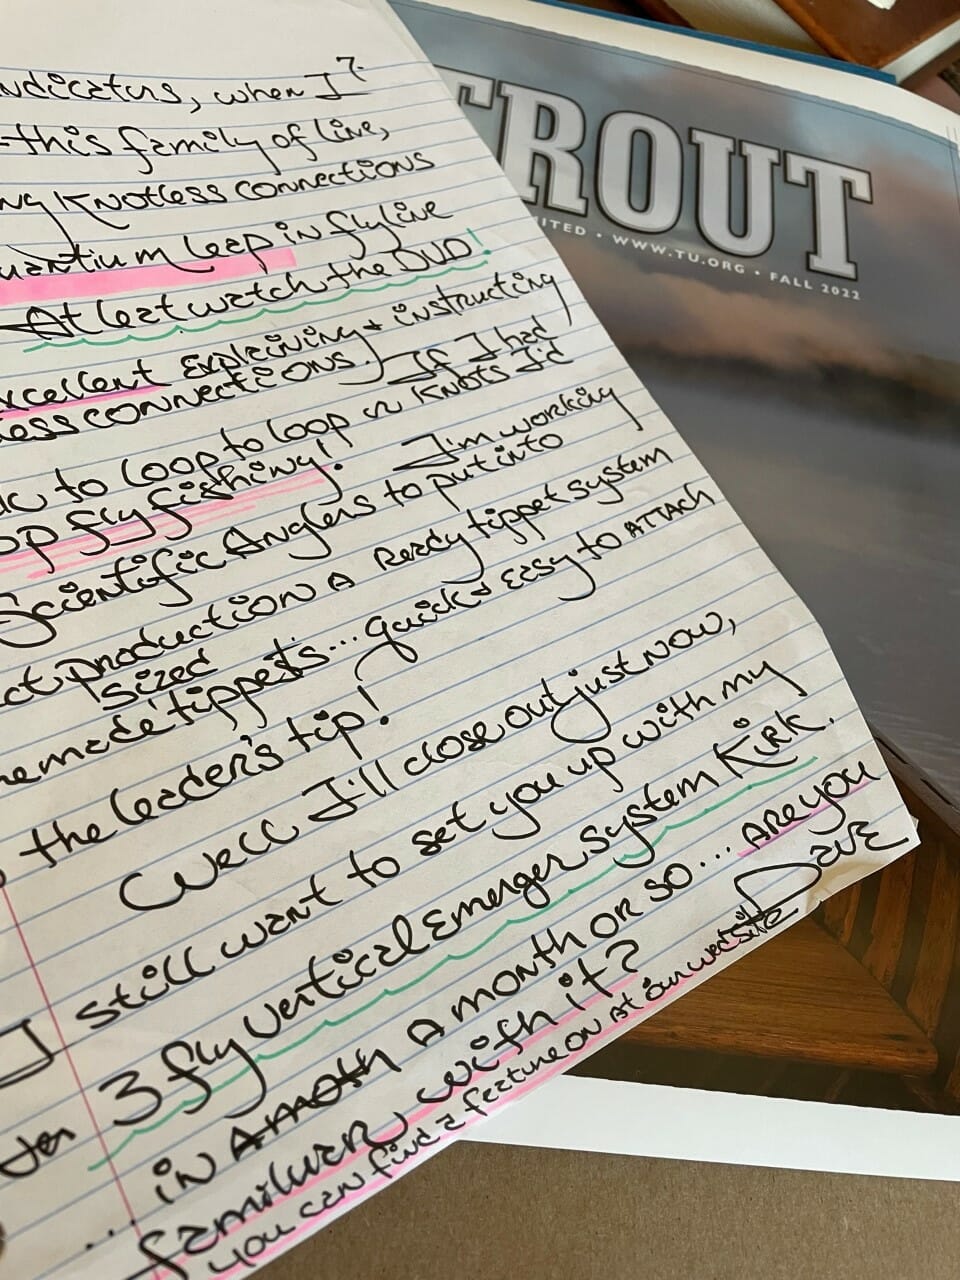 ndicaturs, when I?
this family of live,
ng Knotless connections
uantium leap in fly live
At leat watch the DVD!
xcellent explaining & instructing
less connections. If I had
to loop to loop or Knots I'd
op fly fishing! I'm working
Scientific Anglers to put into
ct production A Ready tippet system
sized
made tippets... quick & easy to ATTACH
the leader's tip!
Well I'll close out just now,
I still want to set you up with my
3 fly vertical Emerger system Kirk.
... in A month A month OR so... ARE you
familiar, with it? DAVE
you can find a feature on at our website
TROUT
ITED • WWW.TU.ORG • FALL 2022